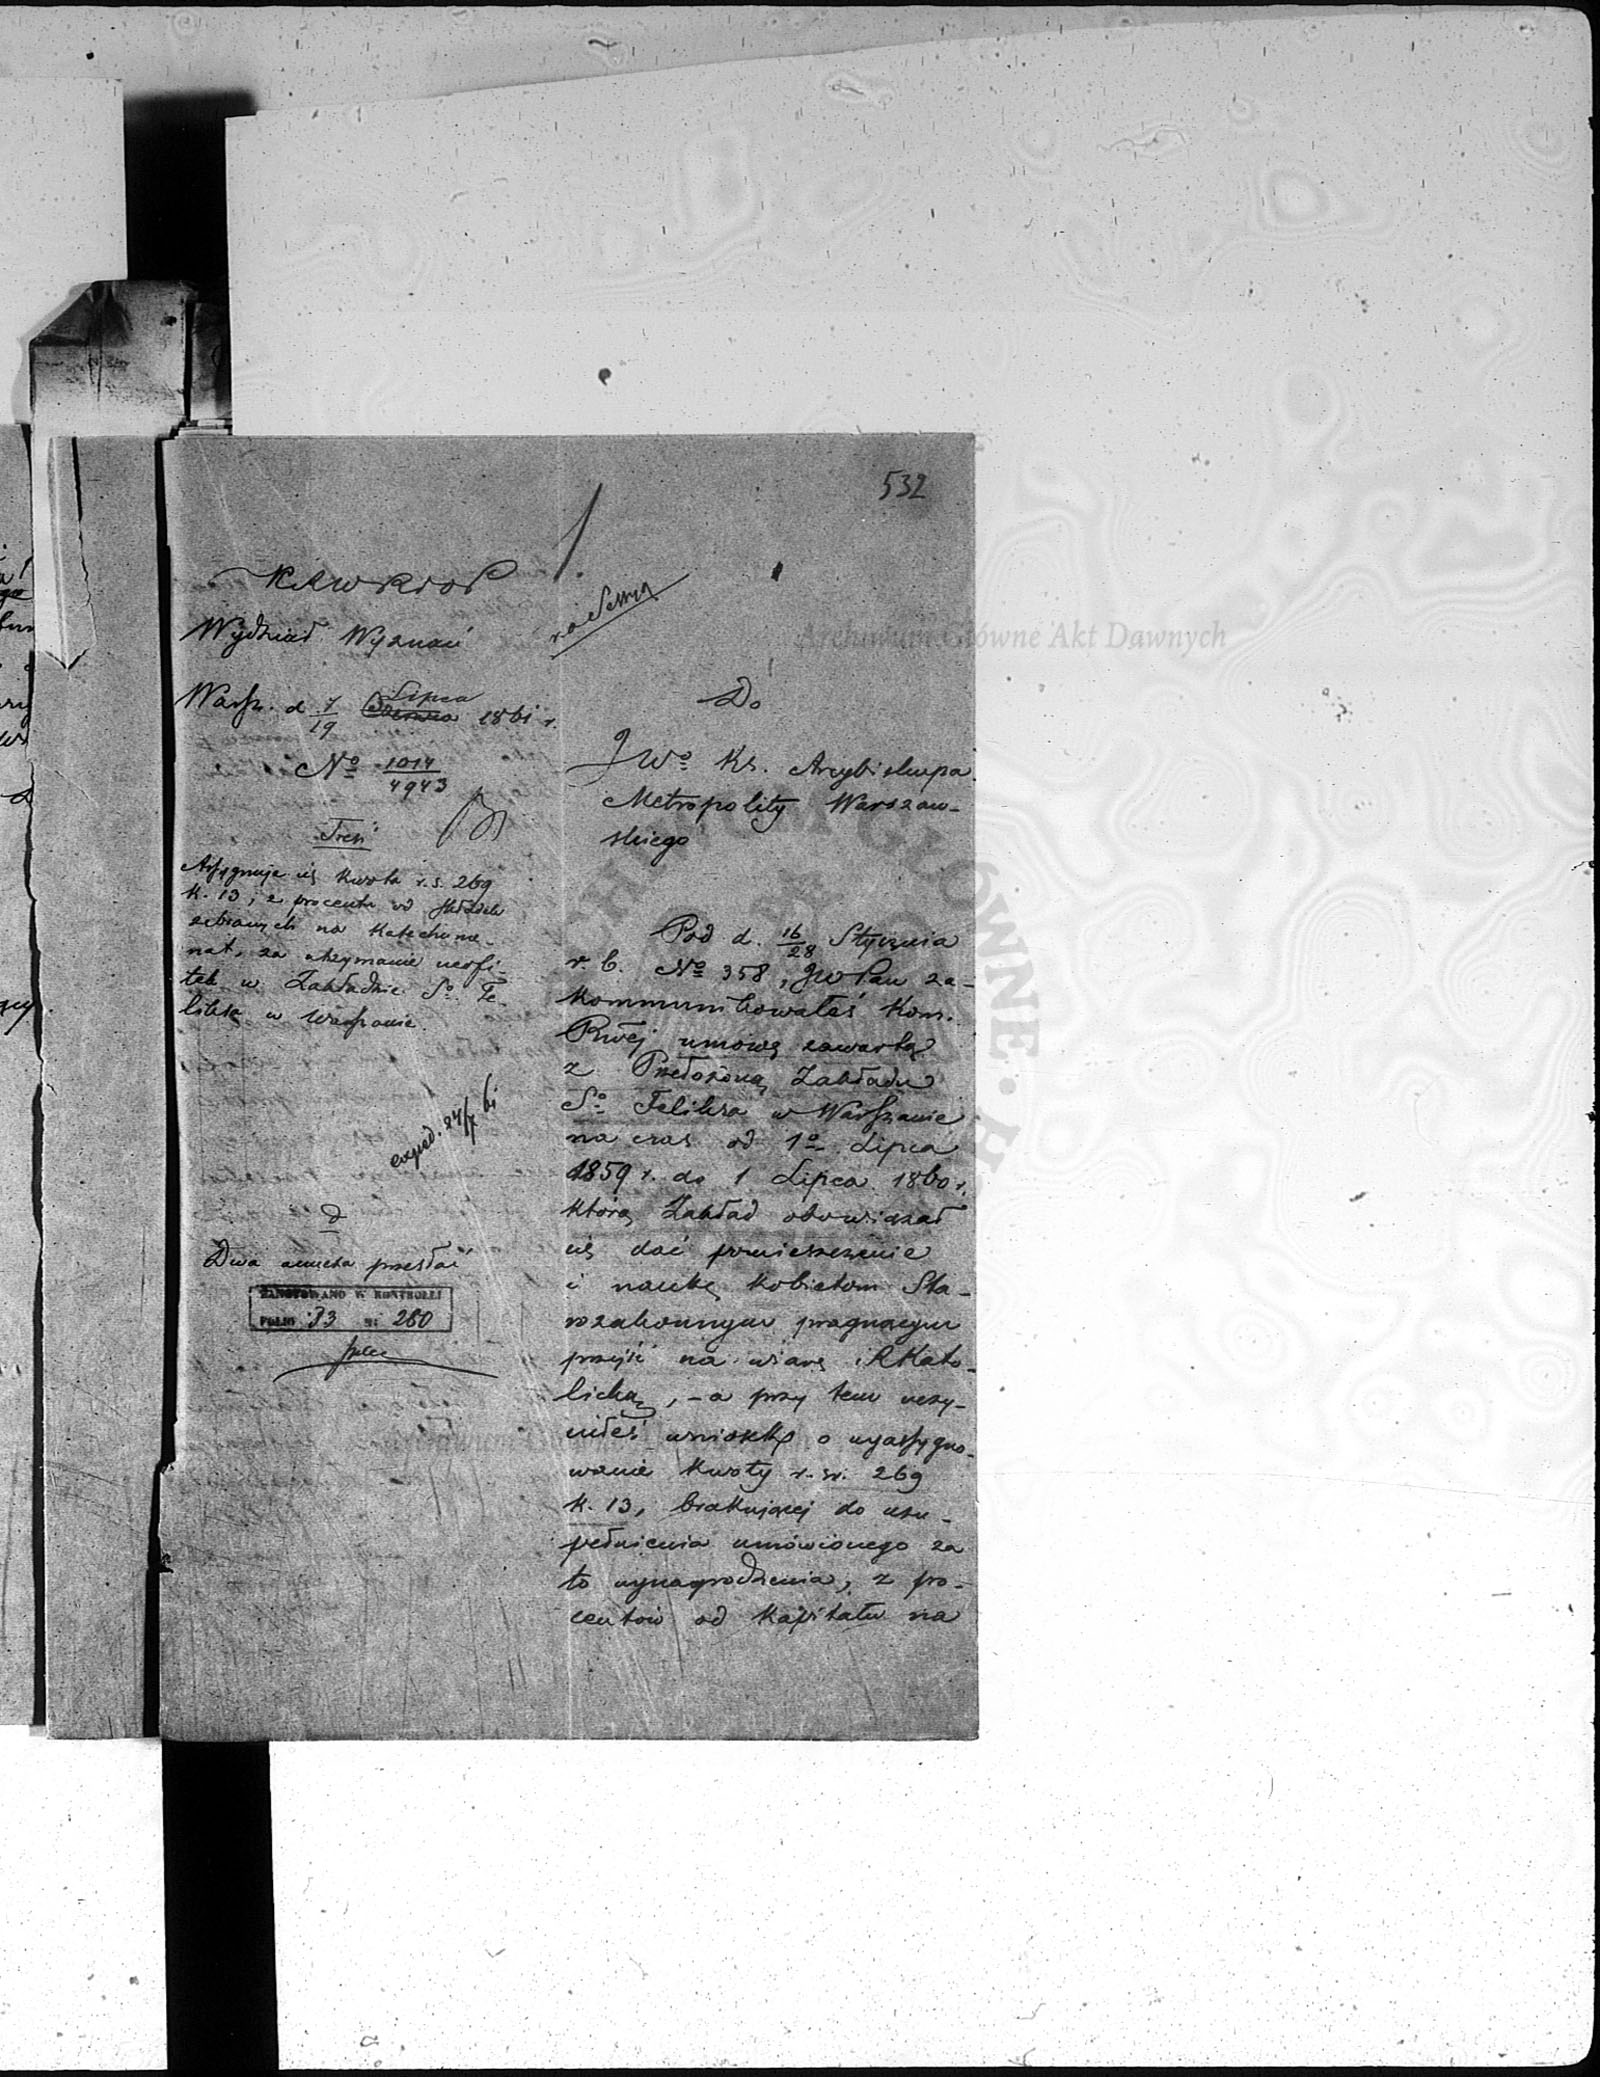 532
Wydział Wyznań
Warsz. d 7/19 Lipca Czerwca 1861 r.
No 1014/4943
Treść
Assygnuje się kwota r.s. 269
k. 13, z procentu od składek
zebranych na Katechume-
nat, za utrzymanie neofi-
tek w Zakładzie So Fe-
liksa w Warszawie.
exped. 24/7 61
Dwa annexa przesłać
ZANOTOWANO W KONTROLLI
FOLIO 33 N: 260
Do
JWo Ks. Arcybiskupa
Metropolity Warszaw-
skiego
Pod d. 16/28 Stycznia
r. b. No 358, JW Pan za-
kommunikowałeś Kom.
Rwej umowę zawartą
z Przełożoną Zakładu
So Feliksa w Warszawie
na czas od 1o Lipca
1859 r. do 1 Lipca 1860 r.
którą Zakład obowiązał
się dać pomieszczenie
i naukę kobietom Sta-
rozakonnym pragnącym
przejść na wiarę RKato-
licką, - a przy tem uczy-
niłeś wniosek o wyassygno-
wanie kwoty r. sr. 269
k. 13, brakującej do uzu-
pełnienia umówionego za
to wynagrodzenia, z pro-
centów od kapitału na
Archiwum Główne Akt Dawnych